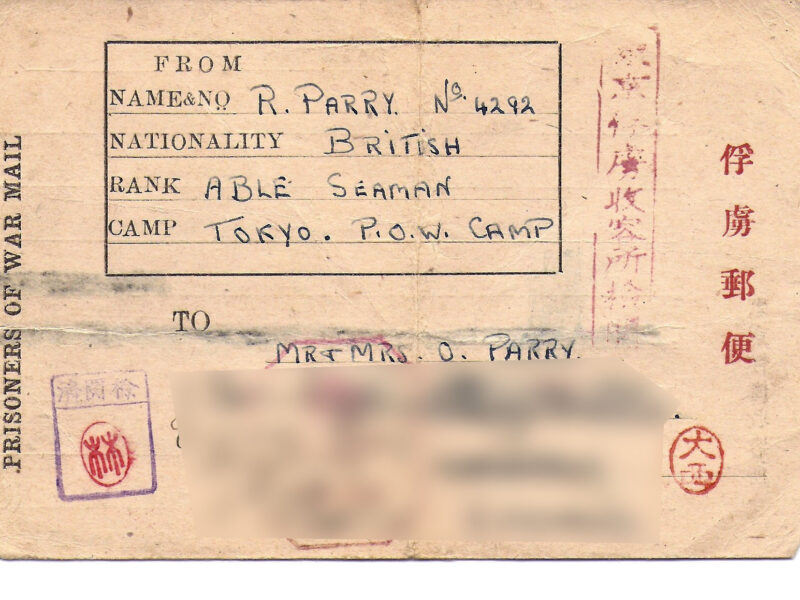 FROM
NAME&NO R. PARRY. No. 4292
NATIONALITY BRITISH
RANK ABLE SEAMAN
CAMP TOKYO. P.O.W. CAMP
TO
MR & MRS. O. PARRY.
PRISONERS OF WAR MAIL
俘虜郵便
東京俘虜收容所檢閲
檢閲濟
林
大西